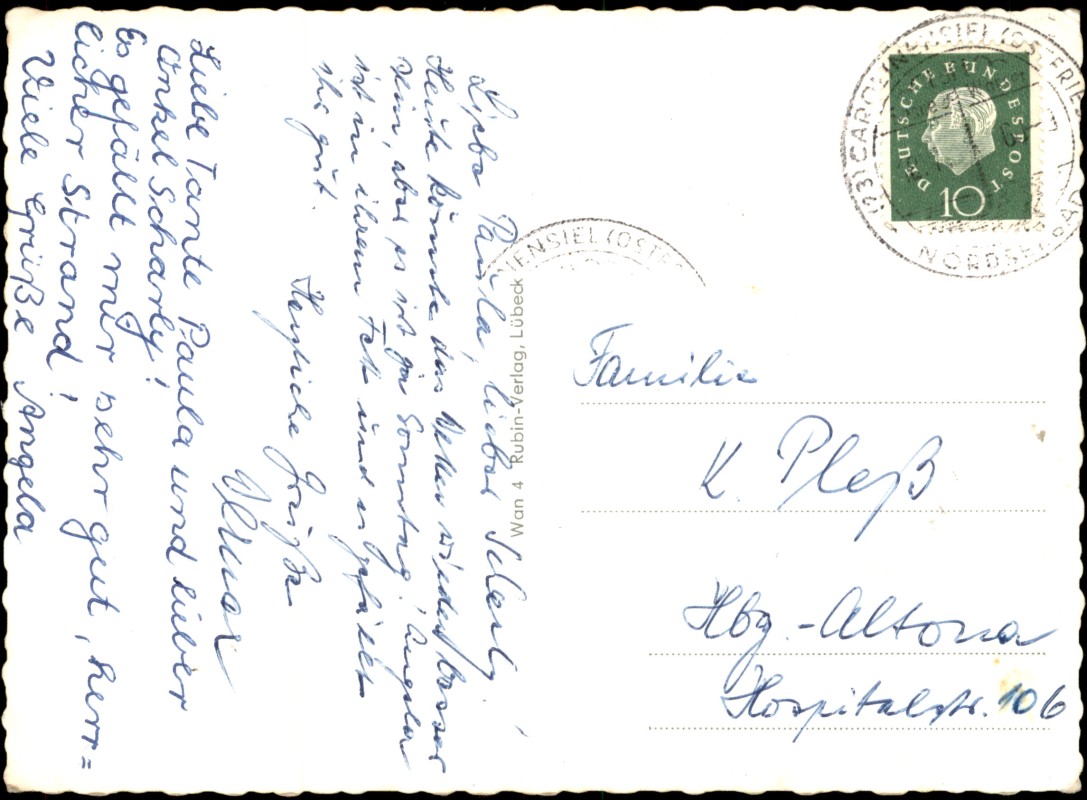 Liebe Paula, lieber Scharly!
Heute könnte das Wetter wieder besser
sein, aber es ist ja Sonntag! Angela
ist in ihrem Fett und es gefällt
ihr gut.
Herzliche Grüße
Liebe Tante Paula und lieber
Onkel Scharly!
Es gefällt mir sehr gut, herr=
licher Strand!
Viele Grüße Angela
Wan 4 Rubin-Verlag, Lübeck
(23) CAROLINENSIEL (OSTFRIES
NORDSEEBAD
DEUTSCHE BUNDESPOST
10
NSIEL (OSTF
Familie
K. Pleß
Hbg.-Altona
Hospitalstr. 106